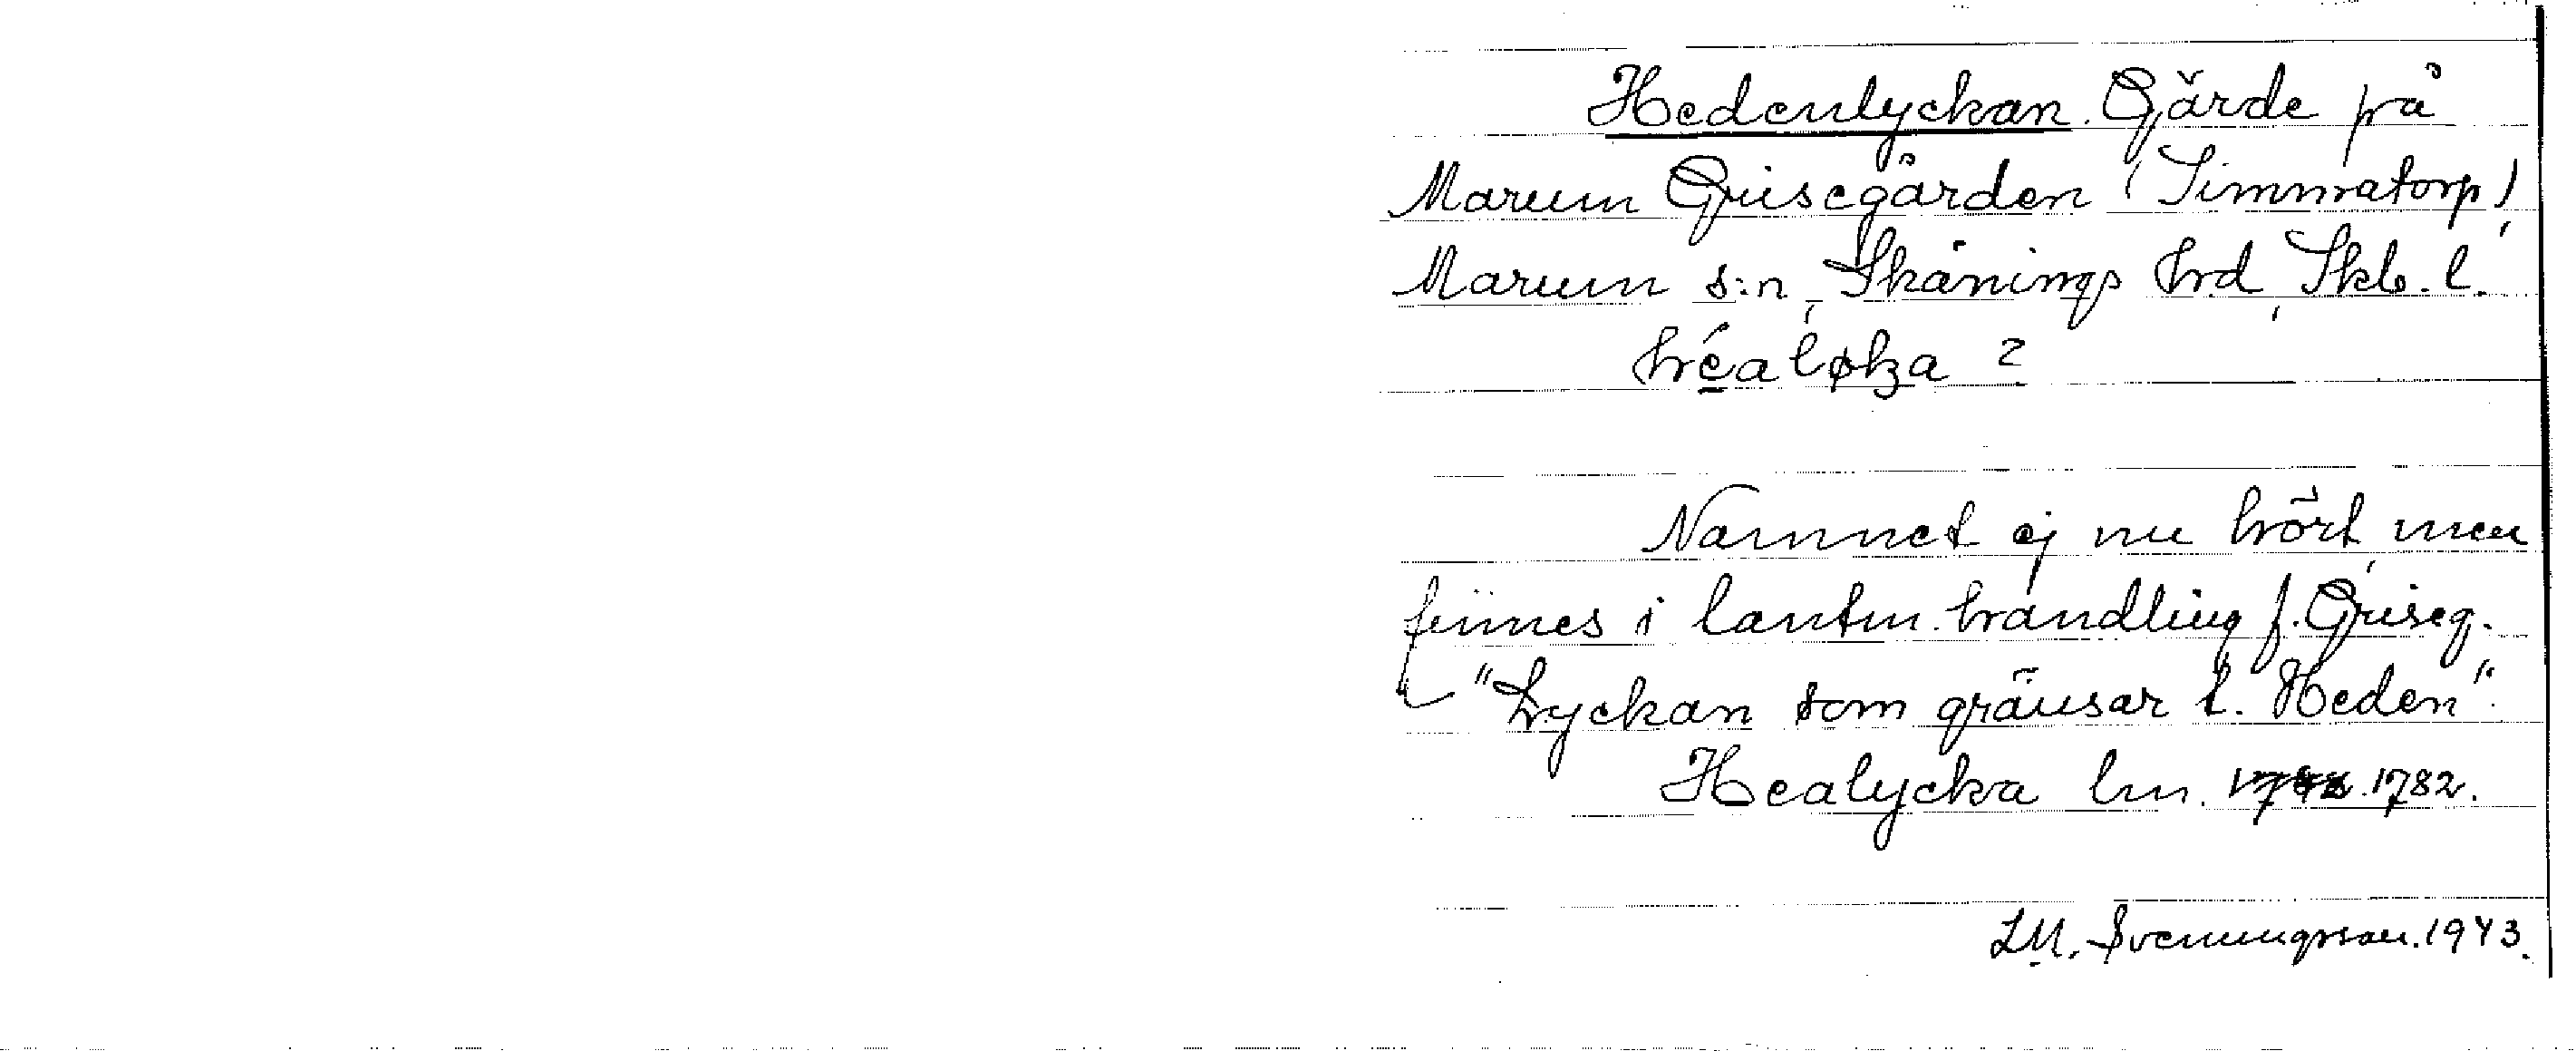 Hedenlyckan. Gärde på
Marum Grisegården (Simmatorp),
Marum s:n, Skånings hrd, Skb. l.
héaløka ?
Namnet ej nu hört, men
finnes i lantm. handling f. Griseg.
"Lyckan som gränsar t. Heden".
Healycka lm. 1782.
LM. Svenungsson. 1943.